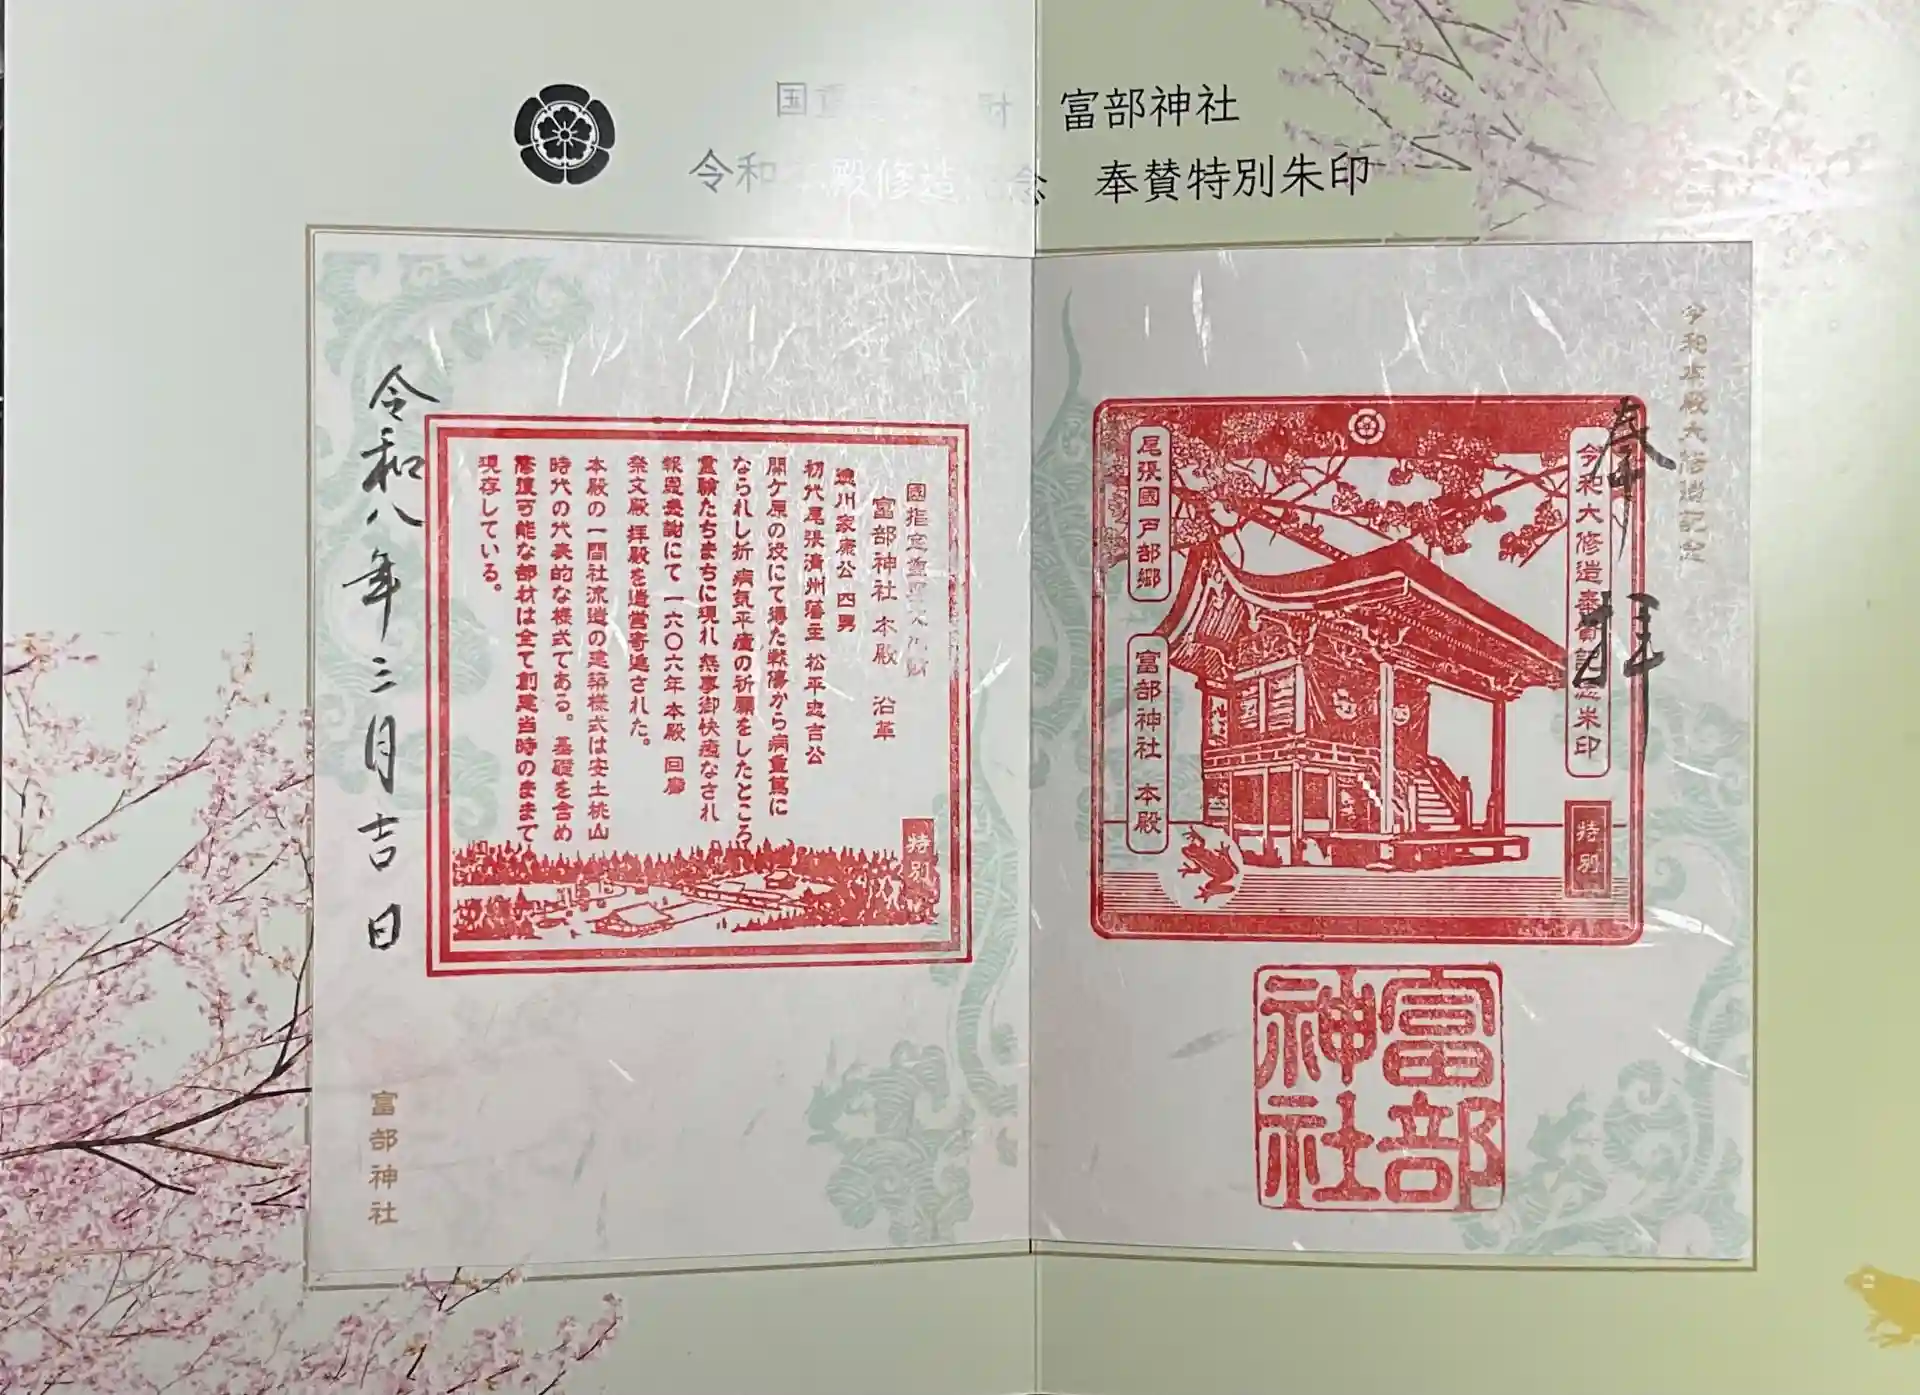 国重 財 富部神社
令和本殿修造記念 奉賛特別朱印
令和本殿大修造記念
奉拝
令和大修造奉賛記念朱印
特別
尾張國戸部郷
富部神社 本殿
富部神社
國指定重要文化財
富部神社 本殿 沿革
徳川家康公 四男
初代尾張清州藩主 松平忠吉公
関ケ原の役にて得た戦傷から病重篤に
なられし折 病気平癒の祈願をしたところ
霊験たちまちに現れ 無事御快癒なされ
報恩感謝にて 一六〇六年 本殿 回廊
祭文殿 拝殿を造営寄進された。
本殿の一間社流造の建築様式は安土桃山
時代の代表的な様式である。基礎を含め
修復可能な部材は全て創建当時のままで
現存している。
特別
令和八年三月吉日
富部神社